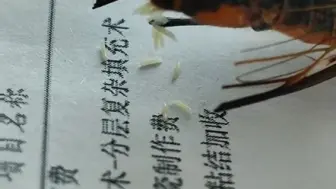 项目名称
费
术-分层复杂填充术
瓷制作费
粘结加收